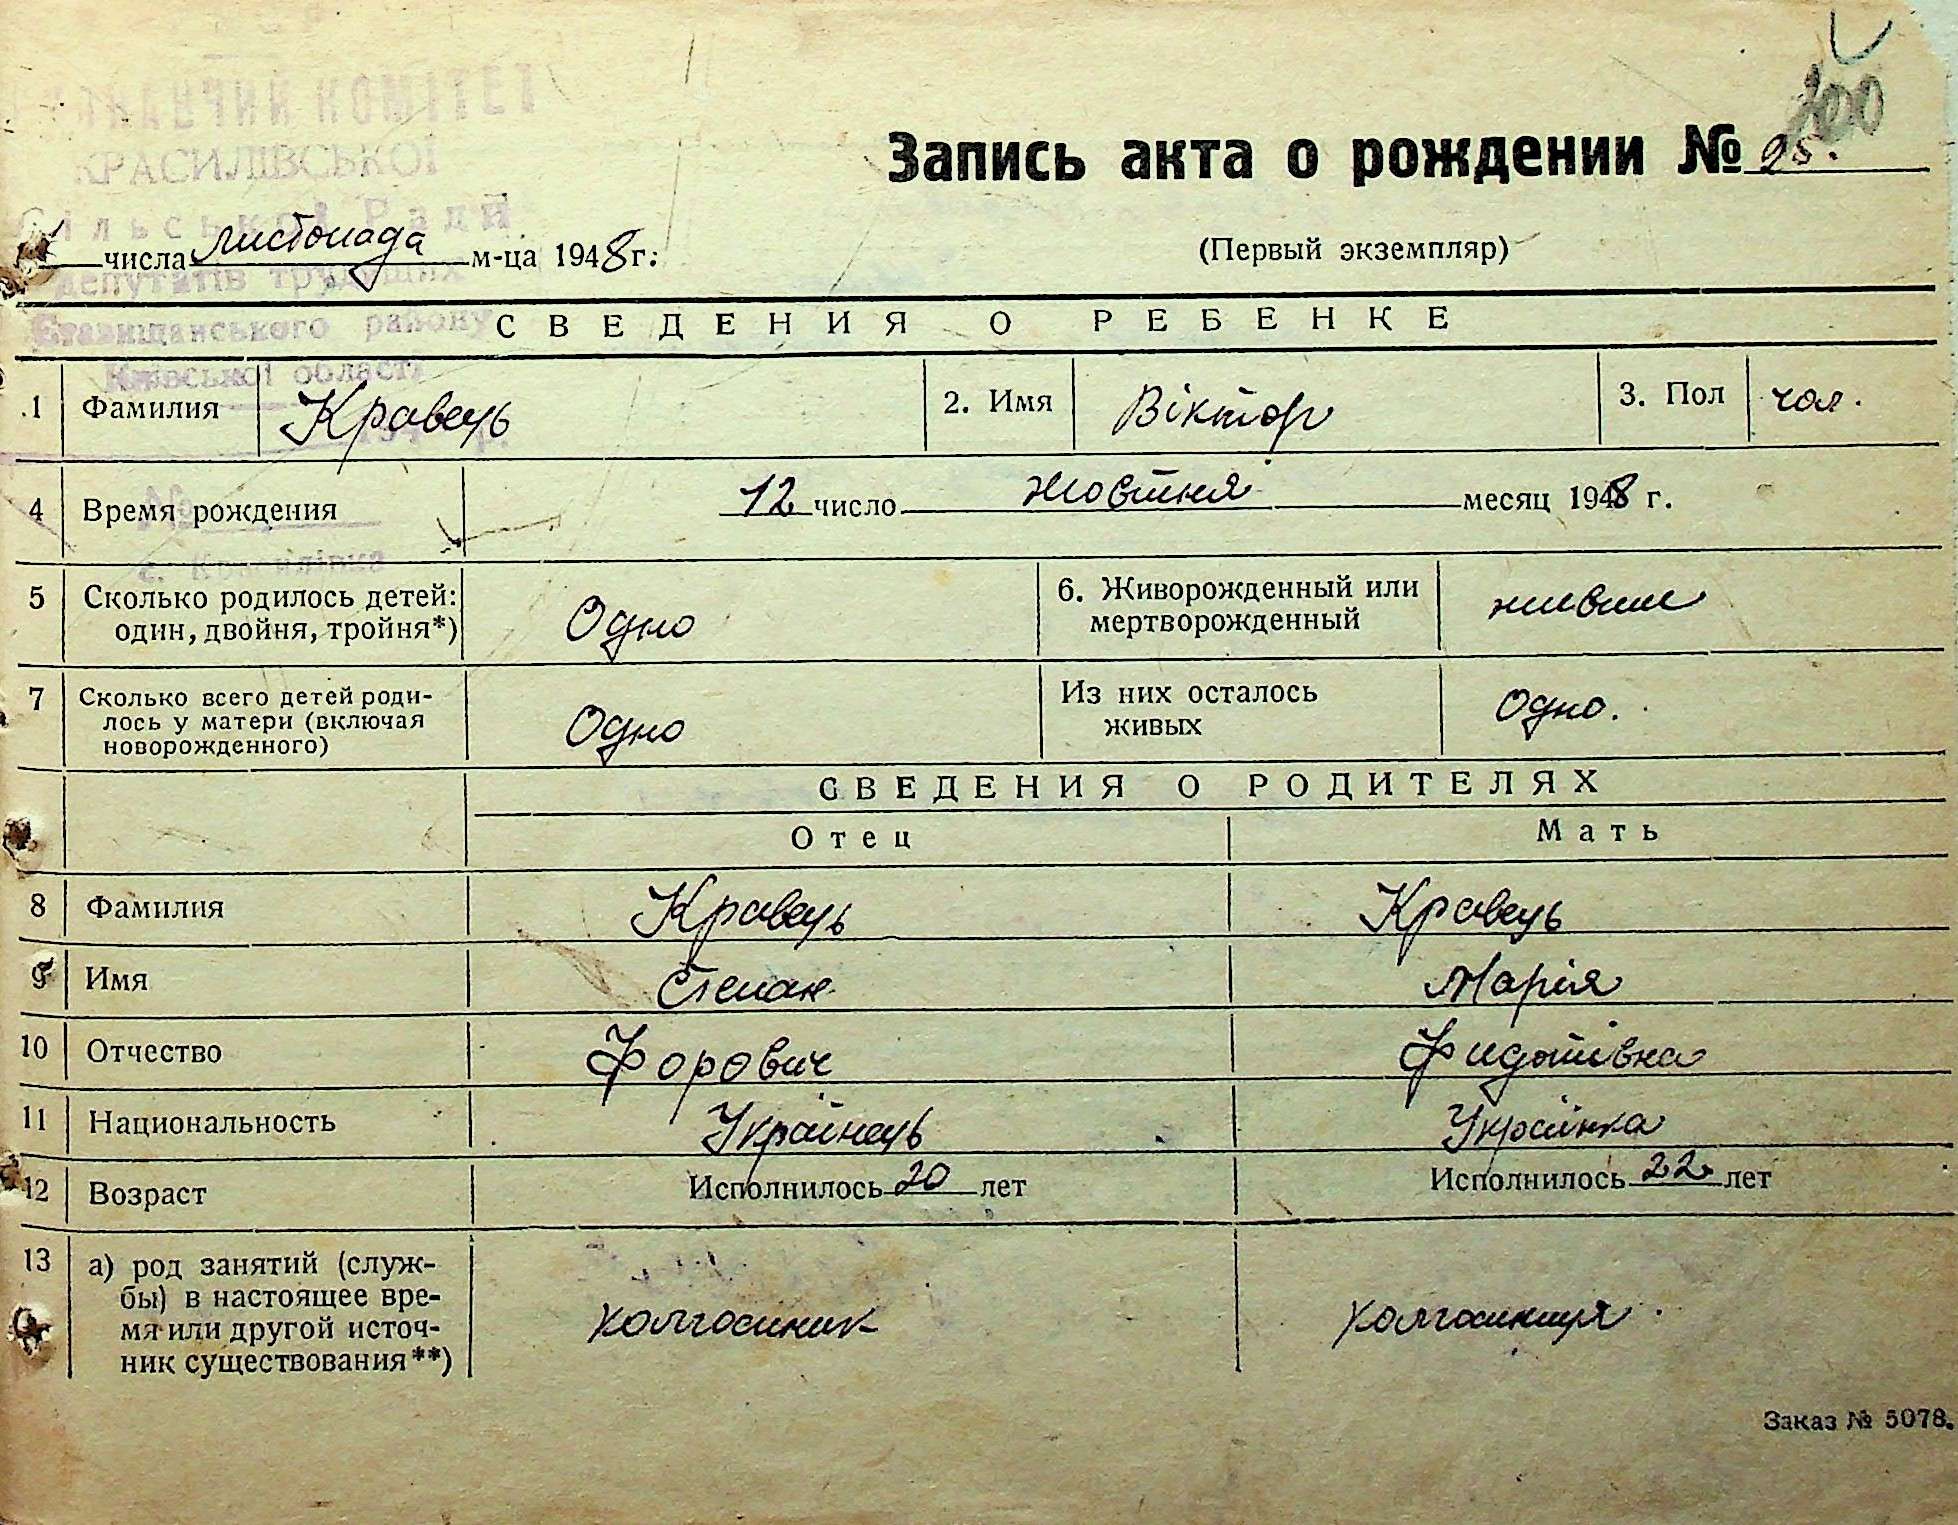 КОМІТЕТ
КРАСИЛІВСЬКОЇ
Сільської Ради
депутатів трудящих
Ставищанського району
Київської області
с. Красилівка
200
Запись акта о рождении № 95.
числа листопада м-ца 1948 г.
(Первый экземпляр)
СВЕДЕНИЯ О РЕБЕНКЕ
1 Фамилия Кравець 2. Имя Віктор 3. Пол чол.
4 Время рождения 12 число жовтня месяц 1948 г.
5 Сколько родилось детей: один, двойня, тройня*) Одно 6. Живорожденный или мертворожденный живим
7 Сколько всего детей родилось у матери (включая новорожденного) Одно Из них осталось живых Одно.
СВЕДЕНИЯ О РОДИТЕЛЯХ
Отец Мать
8 Фамилия Кравець Кравець
9 Имя Степан Марія
10 Отчество Форович Фидотівна
11 Национальность Українець Українка
12 Возраст Исполнилось 20 лет Исполнилось 22 лет
13 а) род занятий (служ-
бы) в настоящее вре-
мя или другой источ-
ник существования**) колгоспник колгоспниця.
Заказ № 5078.